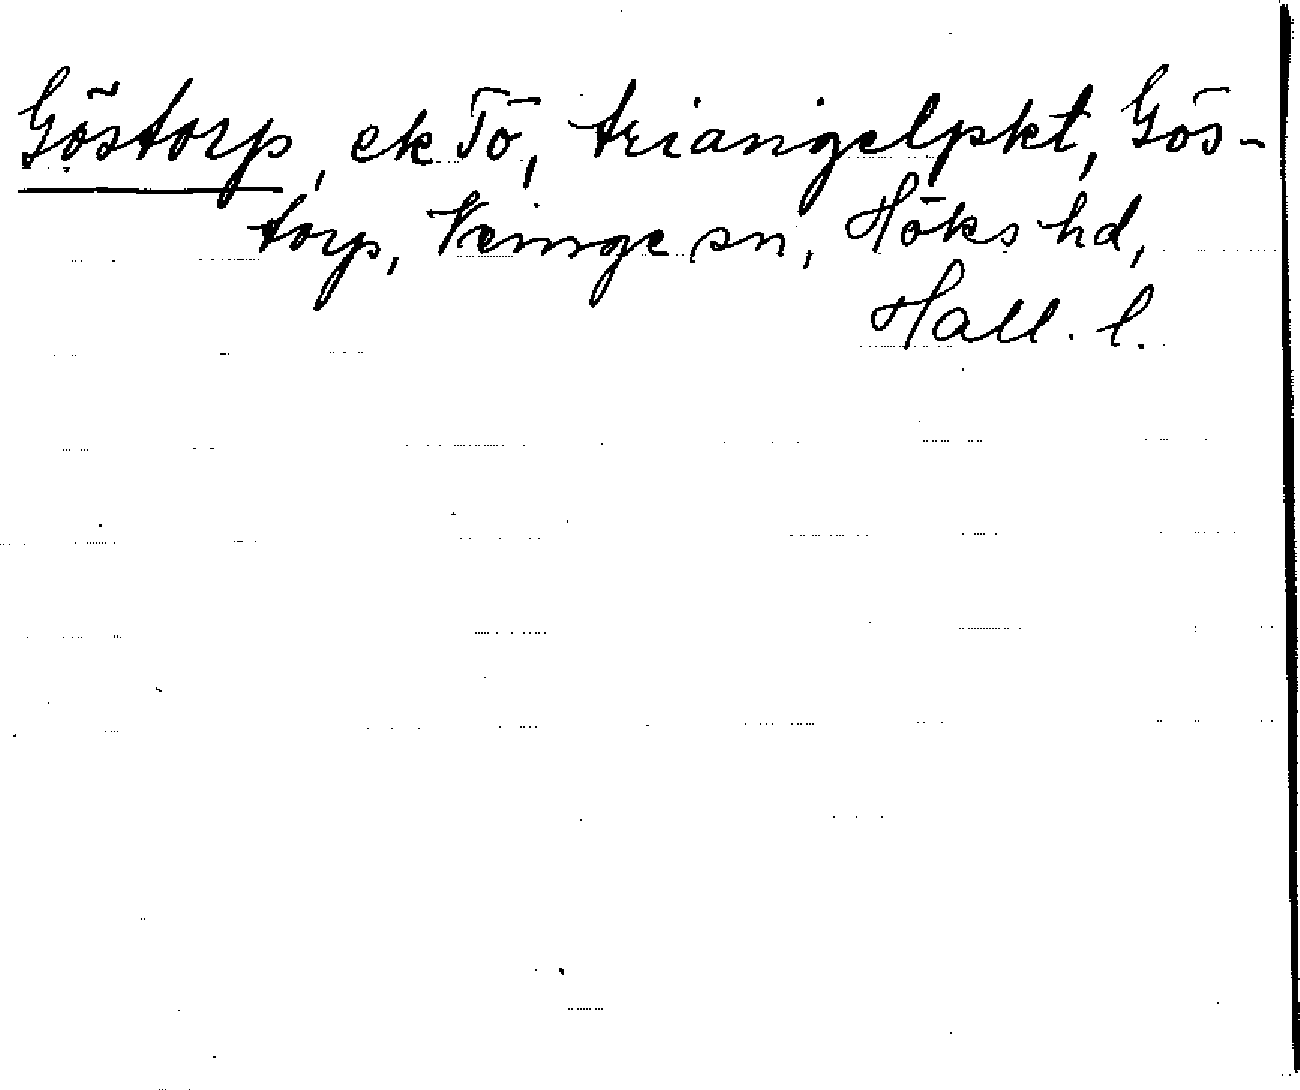 Göstorp, ek Tö, triangelpkt, Gös-
torp, Veinge sn, Höks hd,
Hall. l.